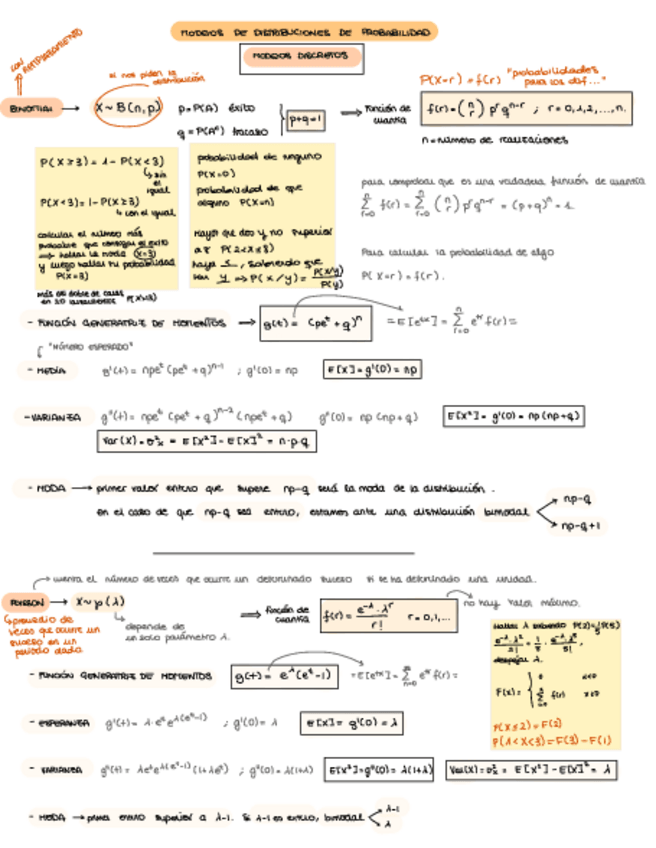 MODELOS DE DISTRIBUCIONES DE PROBABILIDAD
MODELOS DISCRETOS
CON REEMPLAZAMIENTO
si nos piden la distribución
P(X=r) = f(r) "probabilidades
BINOMIAL → X ~ B(n, p)
p = P(A) éxito
q = P(Aᶜ) fracaso
p+q=1
⟹ función de cuantía
f(r) = (n r) pʳ qⁿ⁻ʳ ; r = 0,1,2,...,n.
n = número de realizaciones
P(X≥3) = 1 - P(X<3)
↳ sin el igual
P(X<3) = 1 - P(X≥3)
↳ con el igual
calcular el número más
probable que consigan el éxito
⟹ hallar la moda (X=3)
y luego hallar su probabilidad
P(X=3)
probabilidad de ninguno
P(X=0)
probabilidad de que
alguno P(X=n)
mayor que dos y no superior
a 8 P(2<X≤8)
P(X/Y) = P(X/Y) / P(Y)
para comprobar que es una verdadera función de cuantía
∑ f(r) = ∑ (n r) pʳ qⁿ⁻ʳ = (p+q)ⁿ = 1
Para calcular la probabilidad de algo
P(X=r) = f(r).
- FUNCIÓN GENERATRIZ DE MOMENTOS → g(t) = (peᵗ + q)ⁿ
= E[eᵗˣ] = ∑ eᵗʳ f(r) =
"NÚMERO ESPERADO"
- MEDIA g'(t) = npeᵗ (peᵗ + q)ⁿ⁻¹ ; g'(0) = np E[X] = g'(0) = np
- VARIANZA g''(t) = npeᵗ (peᵗ + q)ⁿ⁻² (npeᵗ + q) g''(0) = np(np+q) E[X²] = g'(0) = np(np+q)
Var(X) = σ²ₓ = E[X²] - E[X]² = n·p·q
- MODA → primer valor entero que supere np-q será la moda de la distribución.
en el caso de que np-q sea entero, estamos ante una distribución bimodal
np-q
np-q+1
cuenta el número de veces que ocurre un determinado suceso si se ha determinado una unidad.
POISSON → X ~ p(λ)
↳ promedio de
veces que ocurre un
suceso en un
periodo dado
depende de
un solo parámetro λ.
⟹ función de cuantía
f(r) = e^-λ · λʳ / r! r = 0,1,...
no hay valor máximo.
Hallar λ sabiendo P(2) = 1/5 P(5)
despejar λ.
F(x) =
P(X≤2) = F(2)
P(1<X<3) = F(3) - F(1)
- FUNCIÓN GENERATRIZ DE MOMENTOS g(t) = e^λ(eᵗ-1)
= E[eᵗˣ] = ∑ eᵗʳ f(r) =
- ESPERANZA g'(t) = λ·eᵗ e^λ(eᵗ-1) ; g'(0) = λ E[X] = g'(0) = λ
- VARIANZA g''(t) = λeᵗ e^λ(eᵗ-1) (1+λeᵗ) ; g''(0) = λ(1+λ) E[X²] = g''(0) = λ(1+λ) Var(X) = σ²ₓ = E[X²] - E[X]² = λ
- MODA → primer entero superior a λ-1. Si λ-1 es entero, bimodal
λ-1
λ